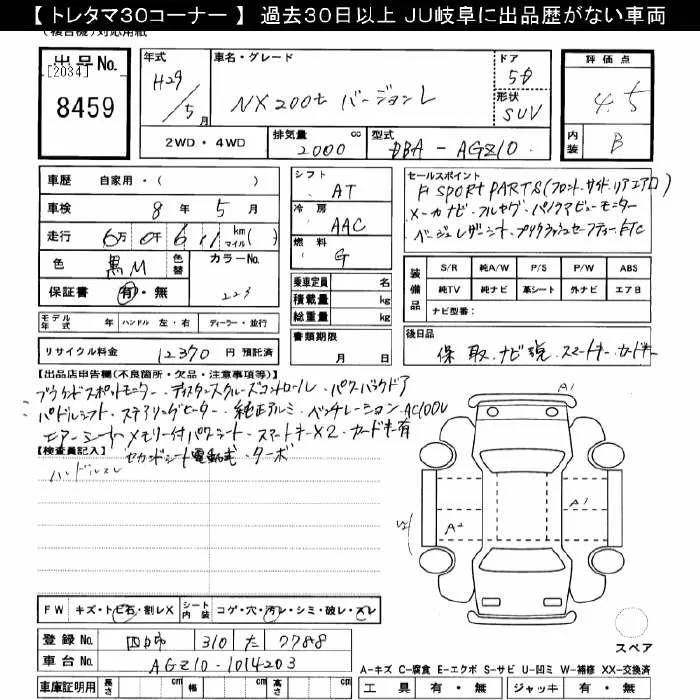 【 トレタマ30コーナー 】 過去30日以上 JU岐阜に出品歴がない車両
出品 No.
[2034]
8459
年式
H29/5月
車名・グレード
NX200t バージョンL
ドア
5D
形状
SUV
評価点
4.5
内装
B
2WD・4WD
排気量
2000 cc
型式
DBA-AGZ10
車歴 自家用・( )
車検 8年 5月
走行 6万0千6 km マイル( )
色 黒M 色替
カラーNo.
223
保証書 有・無
モデル年式 年 ハンドル 左・右 ディーラー・並行
リサイクル料金 12370 円 預託済
シフト
AT
冷房
AAC
燃料
G
乗車定員 名
積載量 kg
総重量 kg
書類期限
月 日
セールスポイント
F SPORT PARTS(フロント.サイド.リアエアロ)
メーカナビ・フルセグ・パノラマビューモニター
ベージュレザーシート・プリクラッシュセーフティ・ETC
装備品
S/R 純A/W P/S P/W ABS
純TV 純ナビ 革シート 外ナビ エアB
ナビ型番:
後日品
保 取 ナビ説 スマートキー カードキー
【出品店申告欄(不良箇所・欠品・注意事項等)】
ブラインドスポットモニター・ディスタンスクルーズコントロール・パワーバックドア
パドルシフト・ステアリングヒーター・純正アルミ・ベンチレーション・AC100V
エアーシート・メモリー付パワーシート・スマートキーX2・カードキー有
セカンドシート電動式・ターボ
【検査員記入】
ハンドルスレ
A1
A1
A2
FW キズ・トビ石・割レX
シート内装 コゲ・穴・汚レ・シミ・破レ・スレ
登録No. 310 た 7788
車台No. AGZ10-1014203
車庫証明用 長さ cm 幅 cm 高さ cm
スペア
A-キズ C-腐食 E-エクボ S-サビ U-凹ミ W-補修 XX-交換済
工具 有・無 ジャッキ 有・無